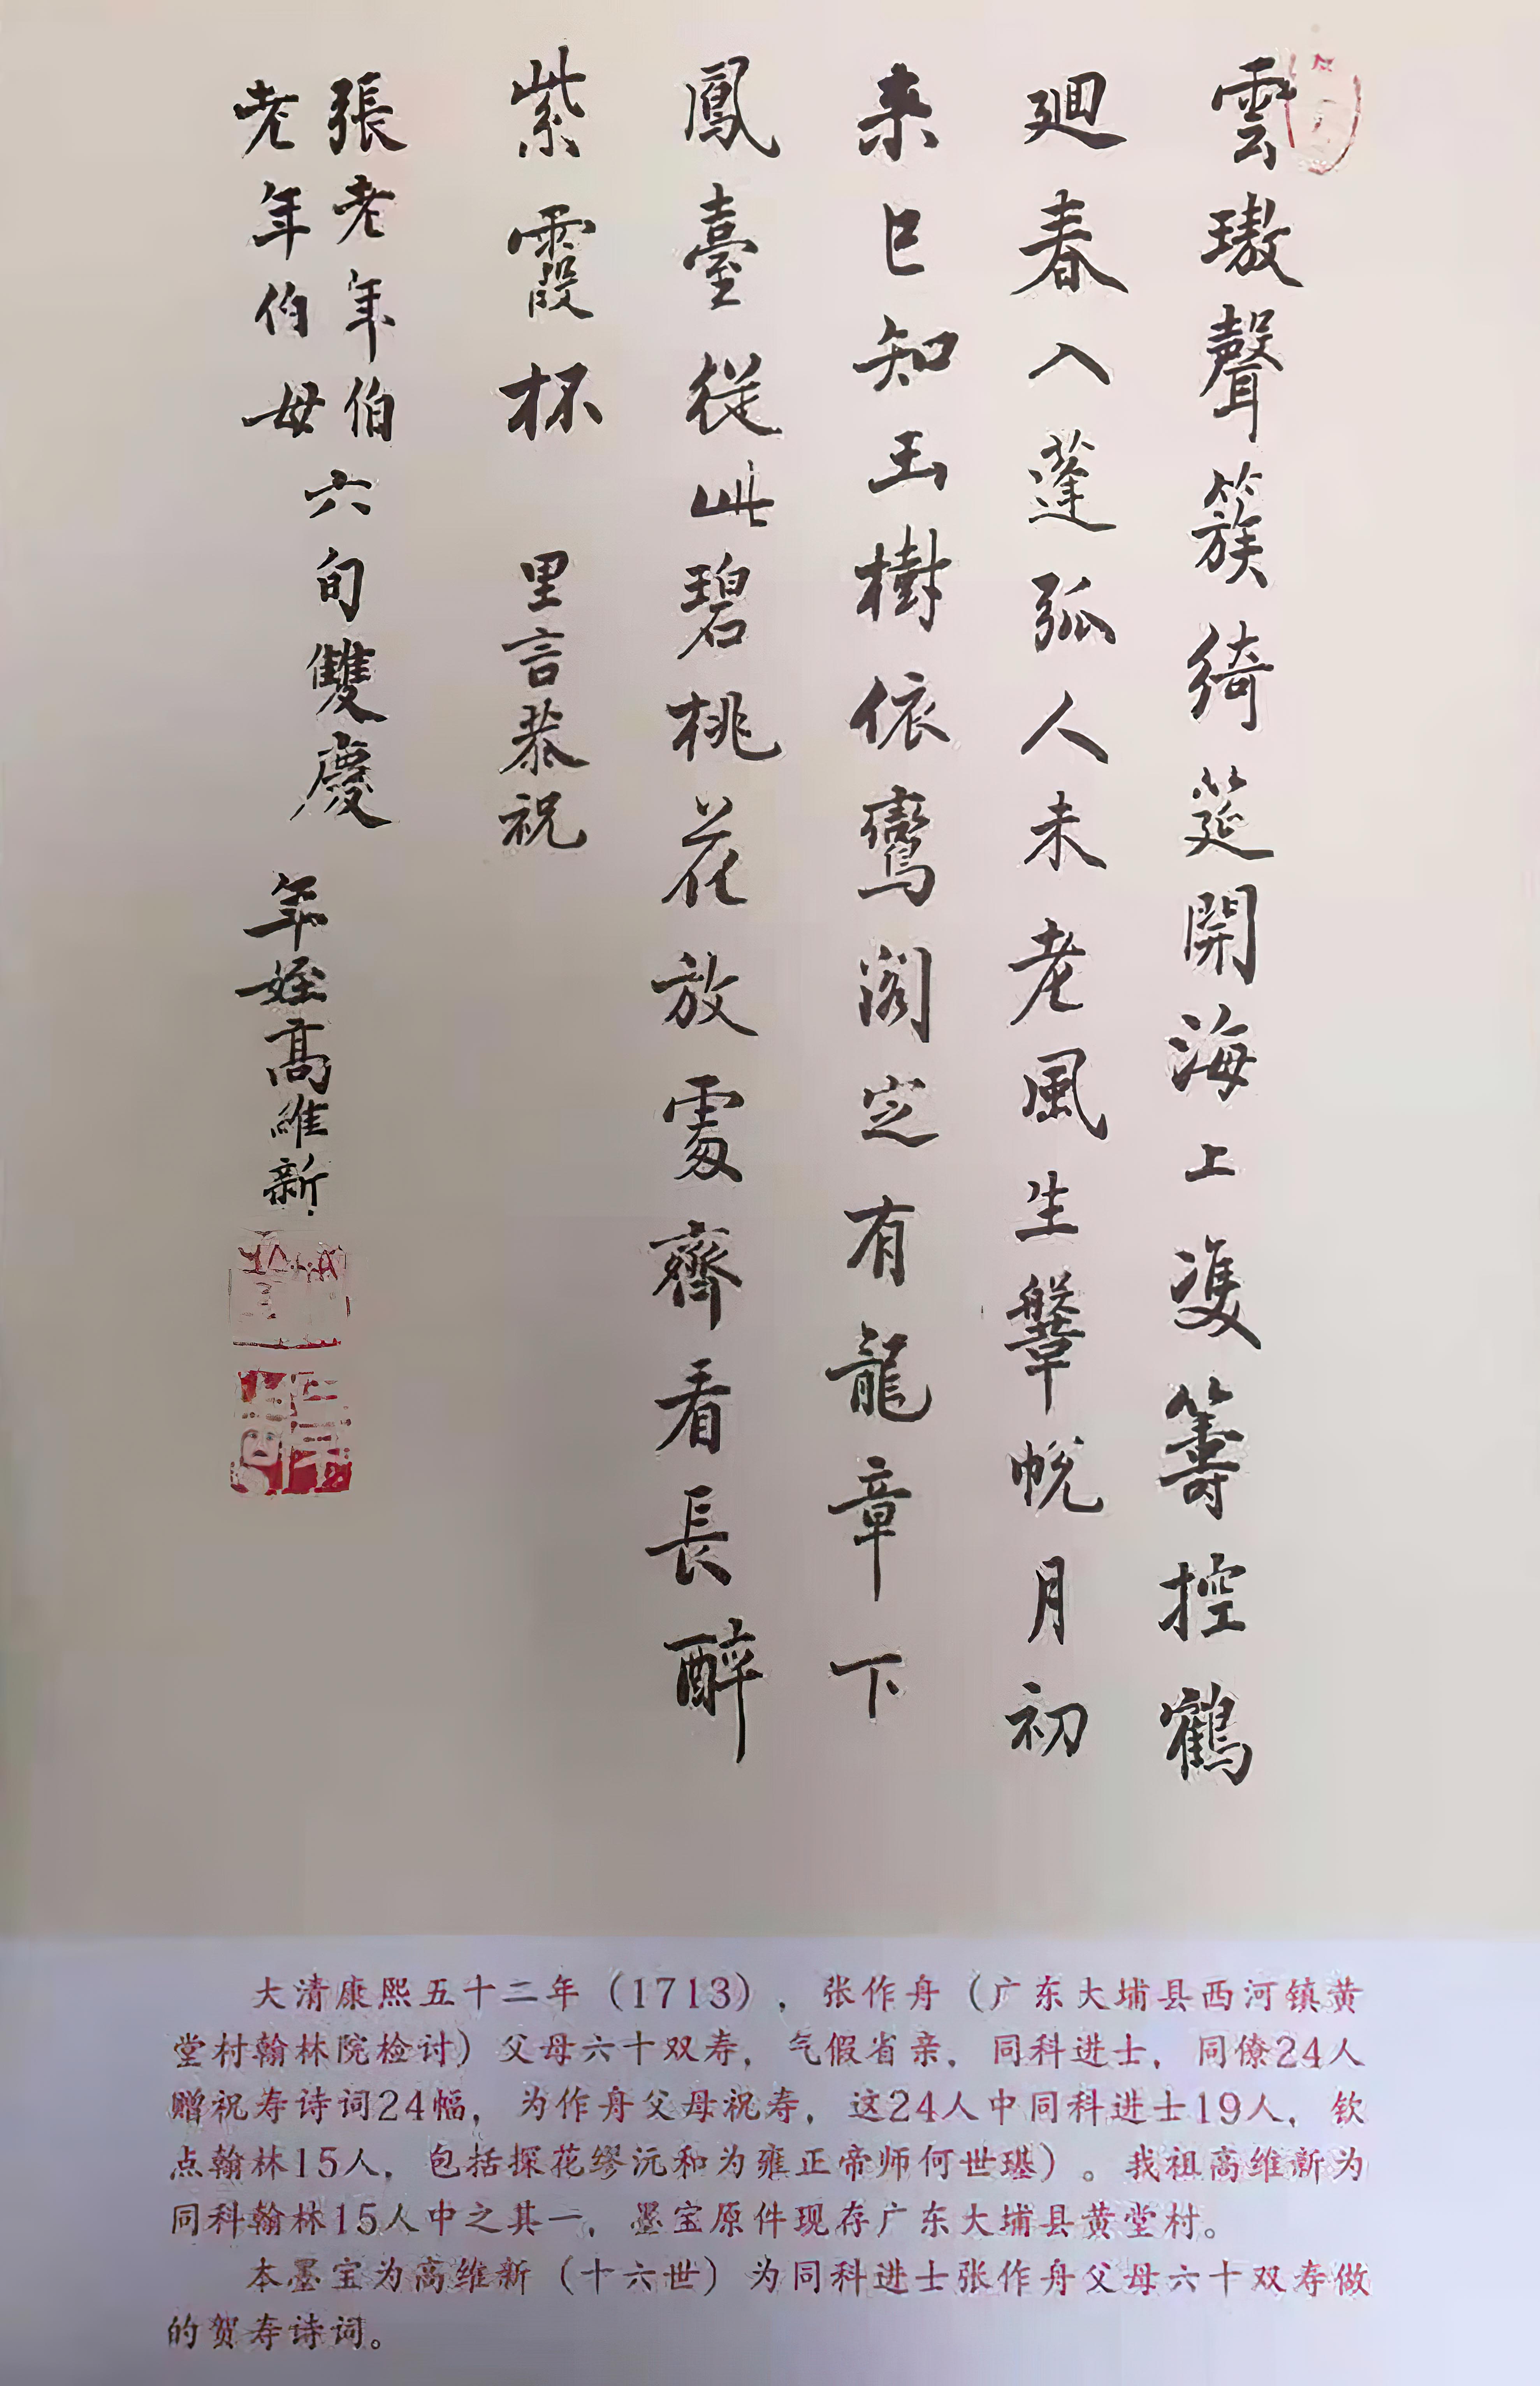 雲璈聲簇綺筵開海上雙籌控鶴
廻春入蓬弧人未老風生鞶帨月初
来已知玉樹依鸞阁定有龍章下
鳳臺從此碧桃花放處齊看長醉
紫霞杯 里言恭祝
張老年伯
老年伯母
六旬雙慶
年姪高維新
大清康熙五十二年（1713），张作舟（广东大埔县西河镇黄
堂村翰林院检讨）父母六十双寿，气假省亲，同科进士，同僚24人
赠祝寿诗词24幅，为作舟父母祝寿，这24人中同科进士19人，钦
点翰林15人，包括探花缪沅和为雍正帝师何世璂）。我祖高维新为
同科翰林15人中之其一，墨宝原件现存广东大埔县黄堂村。
本墨宝为高维新（十六世）为同科进士张作舟父母六十双寿做
的贺寿诗词。